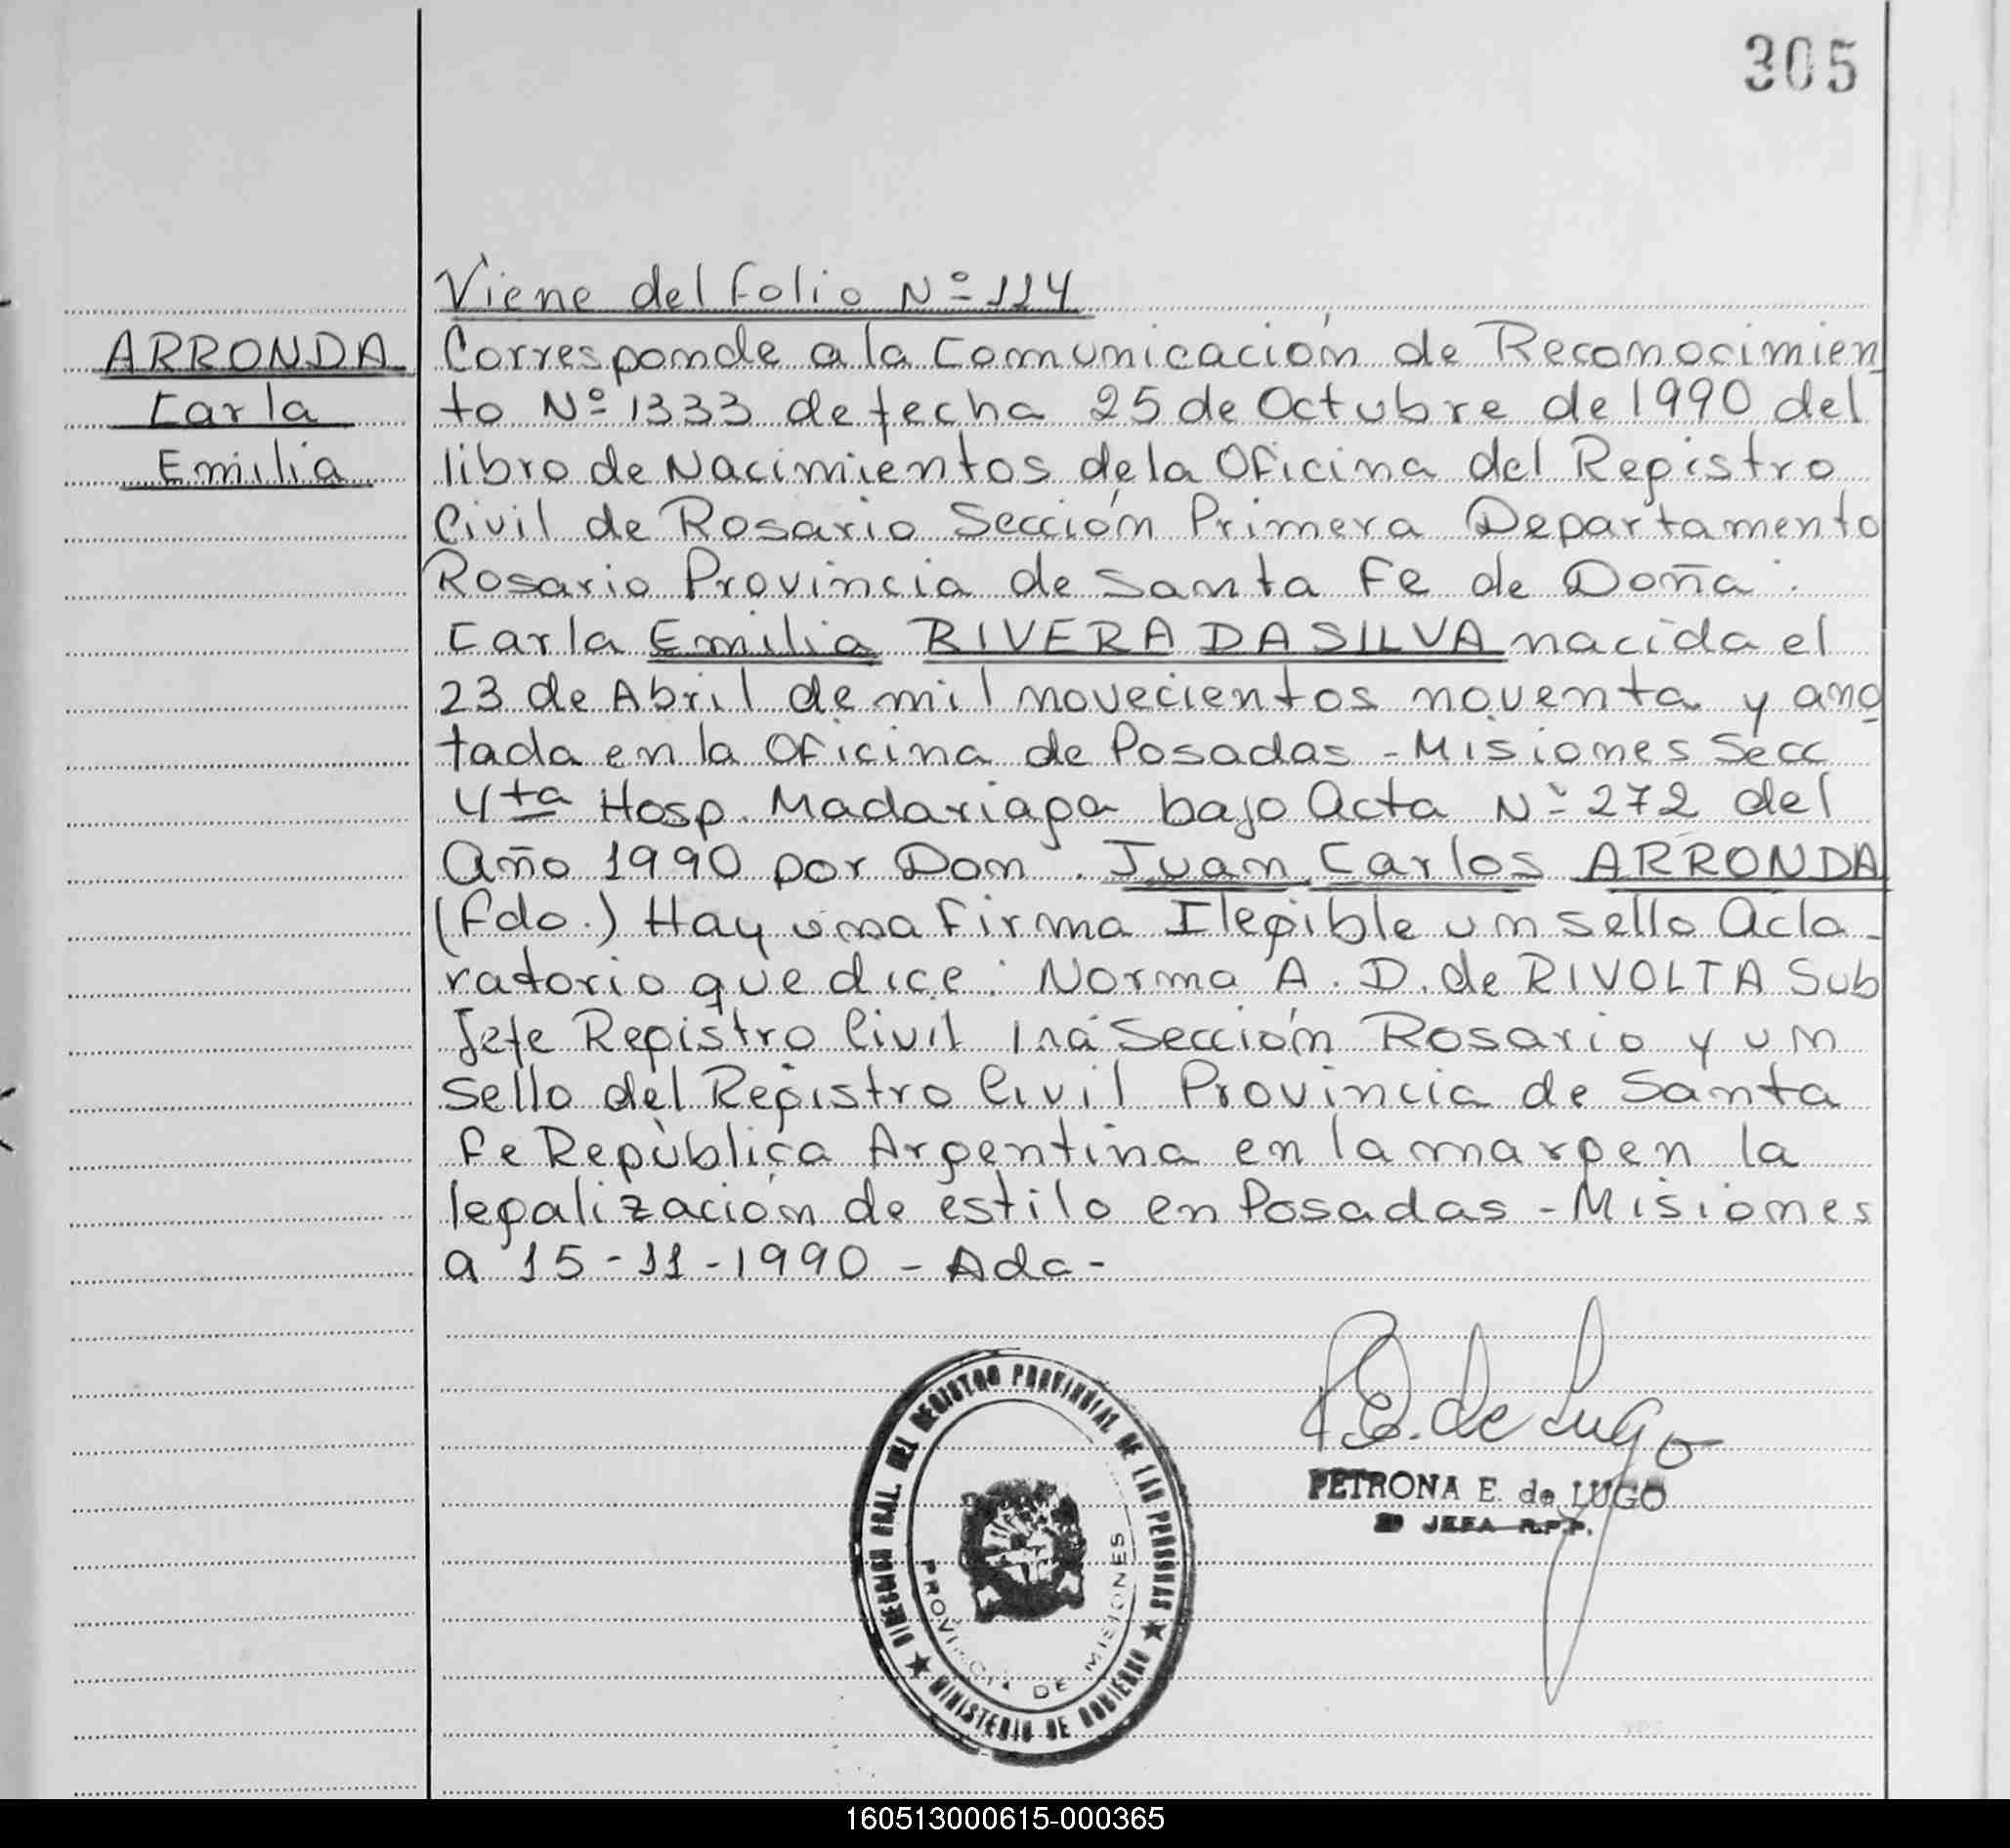 305
Viene del folio Nº 114
ARRONDA
Carla
Emilia
Corresponde a la Comunicación de Reconocimien
to Nº 1333 de fecha 25 de Octubre de 1990 del
libro de Nacimientos de la Oficina del Registro
Civil de Rosario Sección Primera Departamento
Rosario Provincia de Santa Fe de Doña:
Carla Emilia RIVERA DA SILVA nacida el
23 de Abril de mil novecientos noventa y ano
tada en la Oficina de Posadas - Misiones Secc
4ta Hosp. Madariaga bajo Acta Nº 272 del
Año 1990 por Don. Juan Carlos ARRONDA
(Fdo.) Hay una firma Ilegible un sello Acla-
ratorio que dice: Norma A. D. de RIVOLTA Sub
Jefe Registro Civil 1ra Sección Rosario y un
Sello del Registro Civil Provincia de Santa
Fe República Argentina en la margen la
legalización de estilo en Posadas - Misiones
a 15-11-1990 - Ada-
P E. de Lugo
PETRONA E. de LUGO
JEFA R.P.P.
DIRECCION GRAL. DEL REGISTRO PROVINCIAL DE LAS PERSONAS
MINISTERIO DE GOBIERNO
PROVINCIA DE MISIONES
160513000615-000365